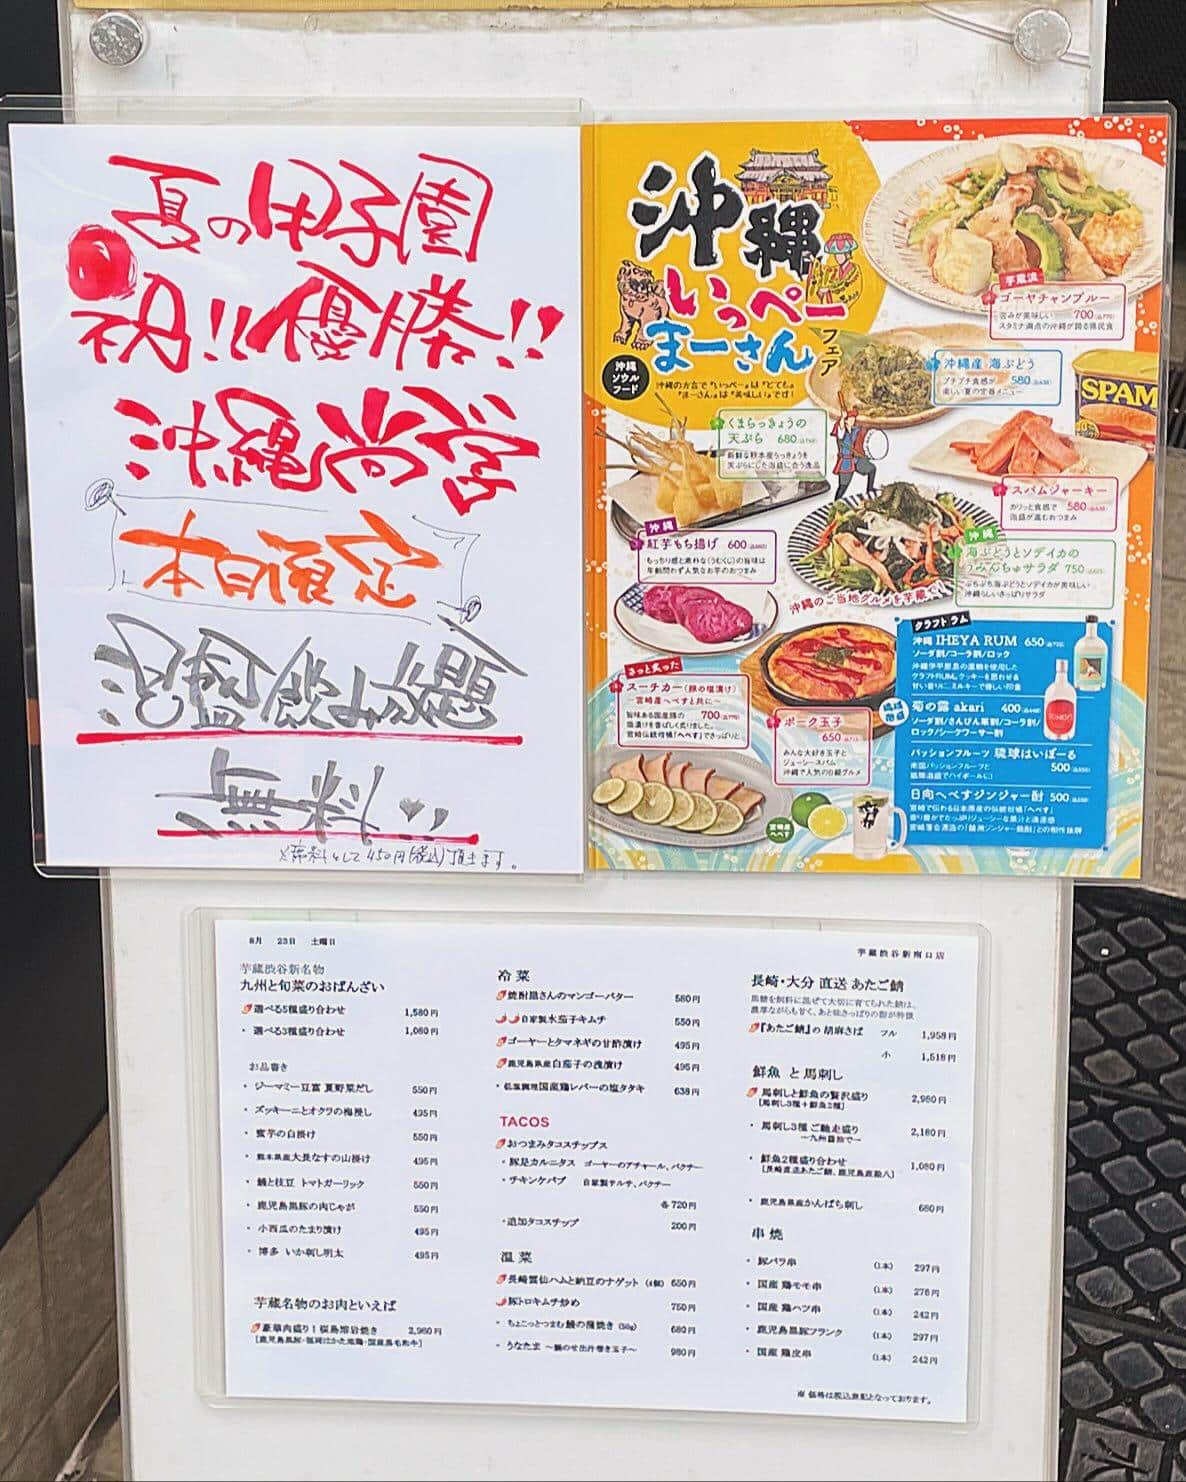 夏の甲子園
祝!!優勝!!
沖縄尚学
本日限定
泡盛飲み放題
無料
※席料として450円(税込)頂きます。
沖縄
いっぺー
まーさん
フェア
沖縄
ソウル
フード
沖縄の方言で『いっぺー』は『とても』
『まーさん』は『美味しい』です!
芋蔵流
ゴーヤチャンプルー
苦みが美味しい 700
スタミナ満点の沖縄が誇る県民食
沖縄産 海ぶどう
プチプチ食感が 580
楽しい夏の定番メニュー
SPAM
くまらっきょうの
天ぷら 680
新鮮な熊本産らっきょうを
天ぷらにした泡盛に合う逸品
スパムジャーキー
カリッと食感で 580
泡盛が進むおつまみ
沖縄
紅芋もち揚げ 600
もっちり感と素朴な(うむくじ)の旨味は
年齢問わず人気なお芋のおつまみ
沖縄
海ぶどうとソデイカの
うみんちゅサラダ 750
ぷちぷち海ぶどうとソデイカが美味しい
沖縄らしいさっぱりサラダ
沖縄のご当地グルメを芋蔵で!
さっと炙った
スーチカー(豚の塩漬け)
〜宮崎産へべすと共に〜
旨味ある国産豚の 700
塩漬けを香ばしく炙りました。
宮崎伝統柑橘「へべす」でさっぱりと
ポーク玉子
650
みんな大好き玉子と
ジューシースパム
沖縄で人気のB級グルメ
宮崎産
へべす
クラフト ラム
沖縄 IHEYA RUM 650
ソーダ割/コーラ割/ロック
沖縄伊平屋島の黒糖を使用した
クラフトRUM。クッキーを思わせる
甘い香りに、ミルキーで優しい印象
菊の露 akari 400
ソーダ割/さんぴん茶割/コーラ割/
ロック/シークワーサー割
パッションフルーツ 琉球はいぼーる
南国パッションフルーツと 500
琉球泡盛でハイボールに!
日向へべすジンジャー酎 500
宮崎で伝わる日本原産の伝統柑橘「へべす」
8月 23日 土曜日
芋蔵渋谷新南口店
芋蔵渋谷新名物
九州と旬菜のおばんざい
選べる5種盛り合わせ 1,580円
・ 選べる3種盛り合わせ 1,080円
お品書き
・ ジーマミー豆富 夏野菜だし 550円
・ ズッキーニとオクラの梅浸し 495円
・ 蜜芋の白掛け 550円
・ 熊本県産大長なすの山掛け 495円
・ 鰻と枝豆 トマトガーリック 550円
・ 鹿児島黒豚の肉じゃが 550円
・ 小西瓜のたまり漬け 495円
・ 博多 いか刺し明太 495円
芋蔵名物のお肉といえば
豪華肉盛り!桜島溶岩焼き 2,980円
[鹿児島黒豚・福岡はかた地鶏・国産黒毛和牛]
冷菜
焼酎屋さんのマンゴーバター 580円
自家製水茄子キムチ 550円
ゴーヤーとタマネギの甘酢漬け 495円
鹿児島県産白茄子の浅漬け 495円
・低温調理国産鶏レバーの塩タタキ 638円
TACOS
おつまみタコスチップス
・豚足カルニタス ゴーヤーのアチャール、パクチー
・チキンケバブ 自家製サルサ、パクチー
各720円
・追加タコスチップ 200円
温菜
長崎雲仙ハムと納豆のナゲット (4個) 650円
豚トロキムチ炒め 750円
・ちょこっとつまむ 鰻の蒲焼き (50g) 680円
・うなたま 〜鰻のせ出汁巻き玉子〜 980円
長崎・大分 直送 あたご鯖
黒糖を飼料に混ぜて大切に育てられた鯖は、
濃厚ながらも甘く、あと味さっぱりの脂が特徴
『あたご鯖』の 胡麻さば フル 1,958円
小 1,518円
鮮魚 と 馬刺し
馬刺しと鮮魚の贅沢盛り 2,980円
[馬刺し3種+鮮魚2種]
・ 馬刺し3種 ご馳走盛り 2,180円
〜九州醤油で〜
・ 鮮魚2種盛り合わせ 1,080円
[長崎直送あたご鯖、鹿児島直勘八]
・ 鹿児島県産かんぱち刺し 680円
串焼
・ 豚バラ串 (1本) 297円
・ 国産 鶏モモ串 (1本) 276円
・ 国産 鶏ハツ串 (1本) 242円
・ 鹿児島黒豚フランク (1本) 297円
・ 国産 鶏皮串 (1本) 242円
※ 価格は税込表記となっております。